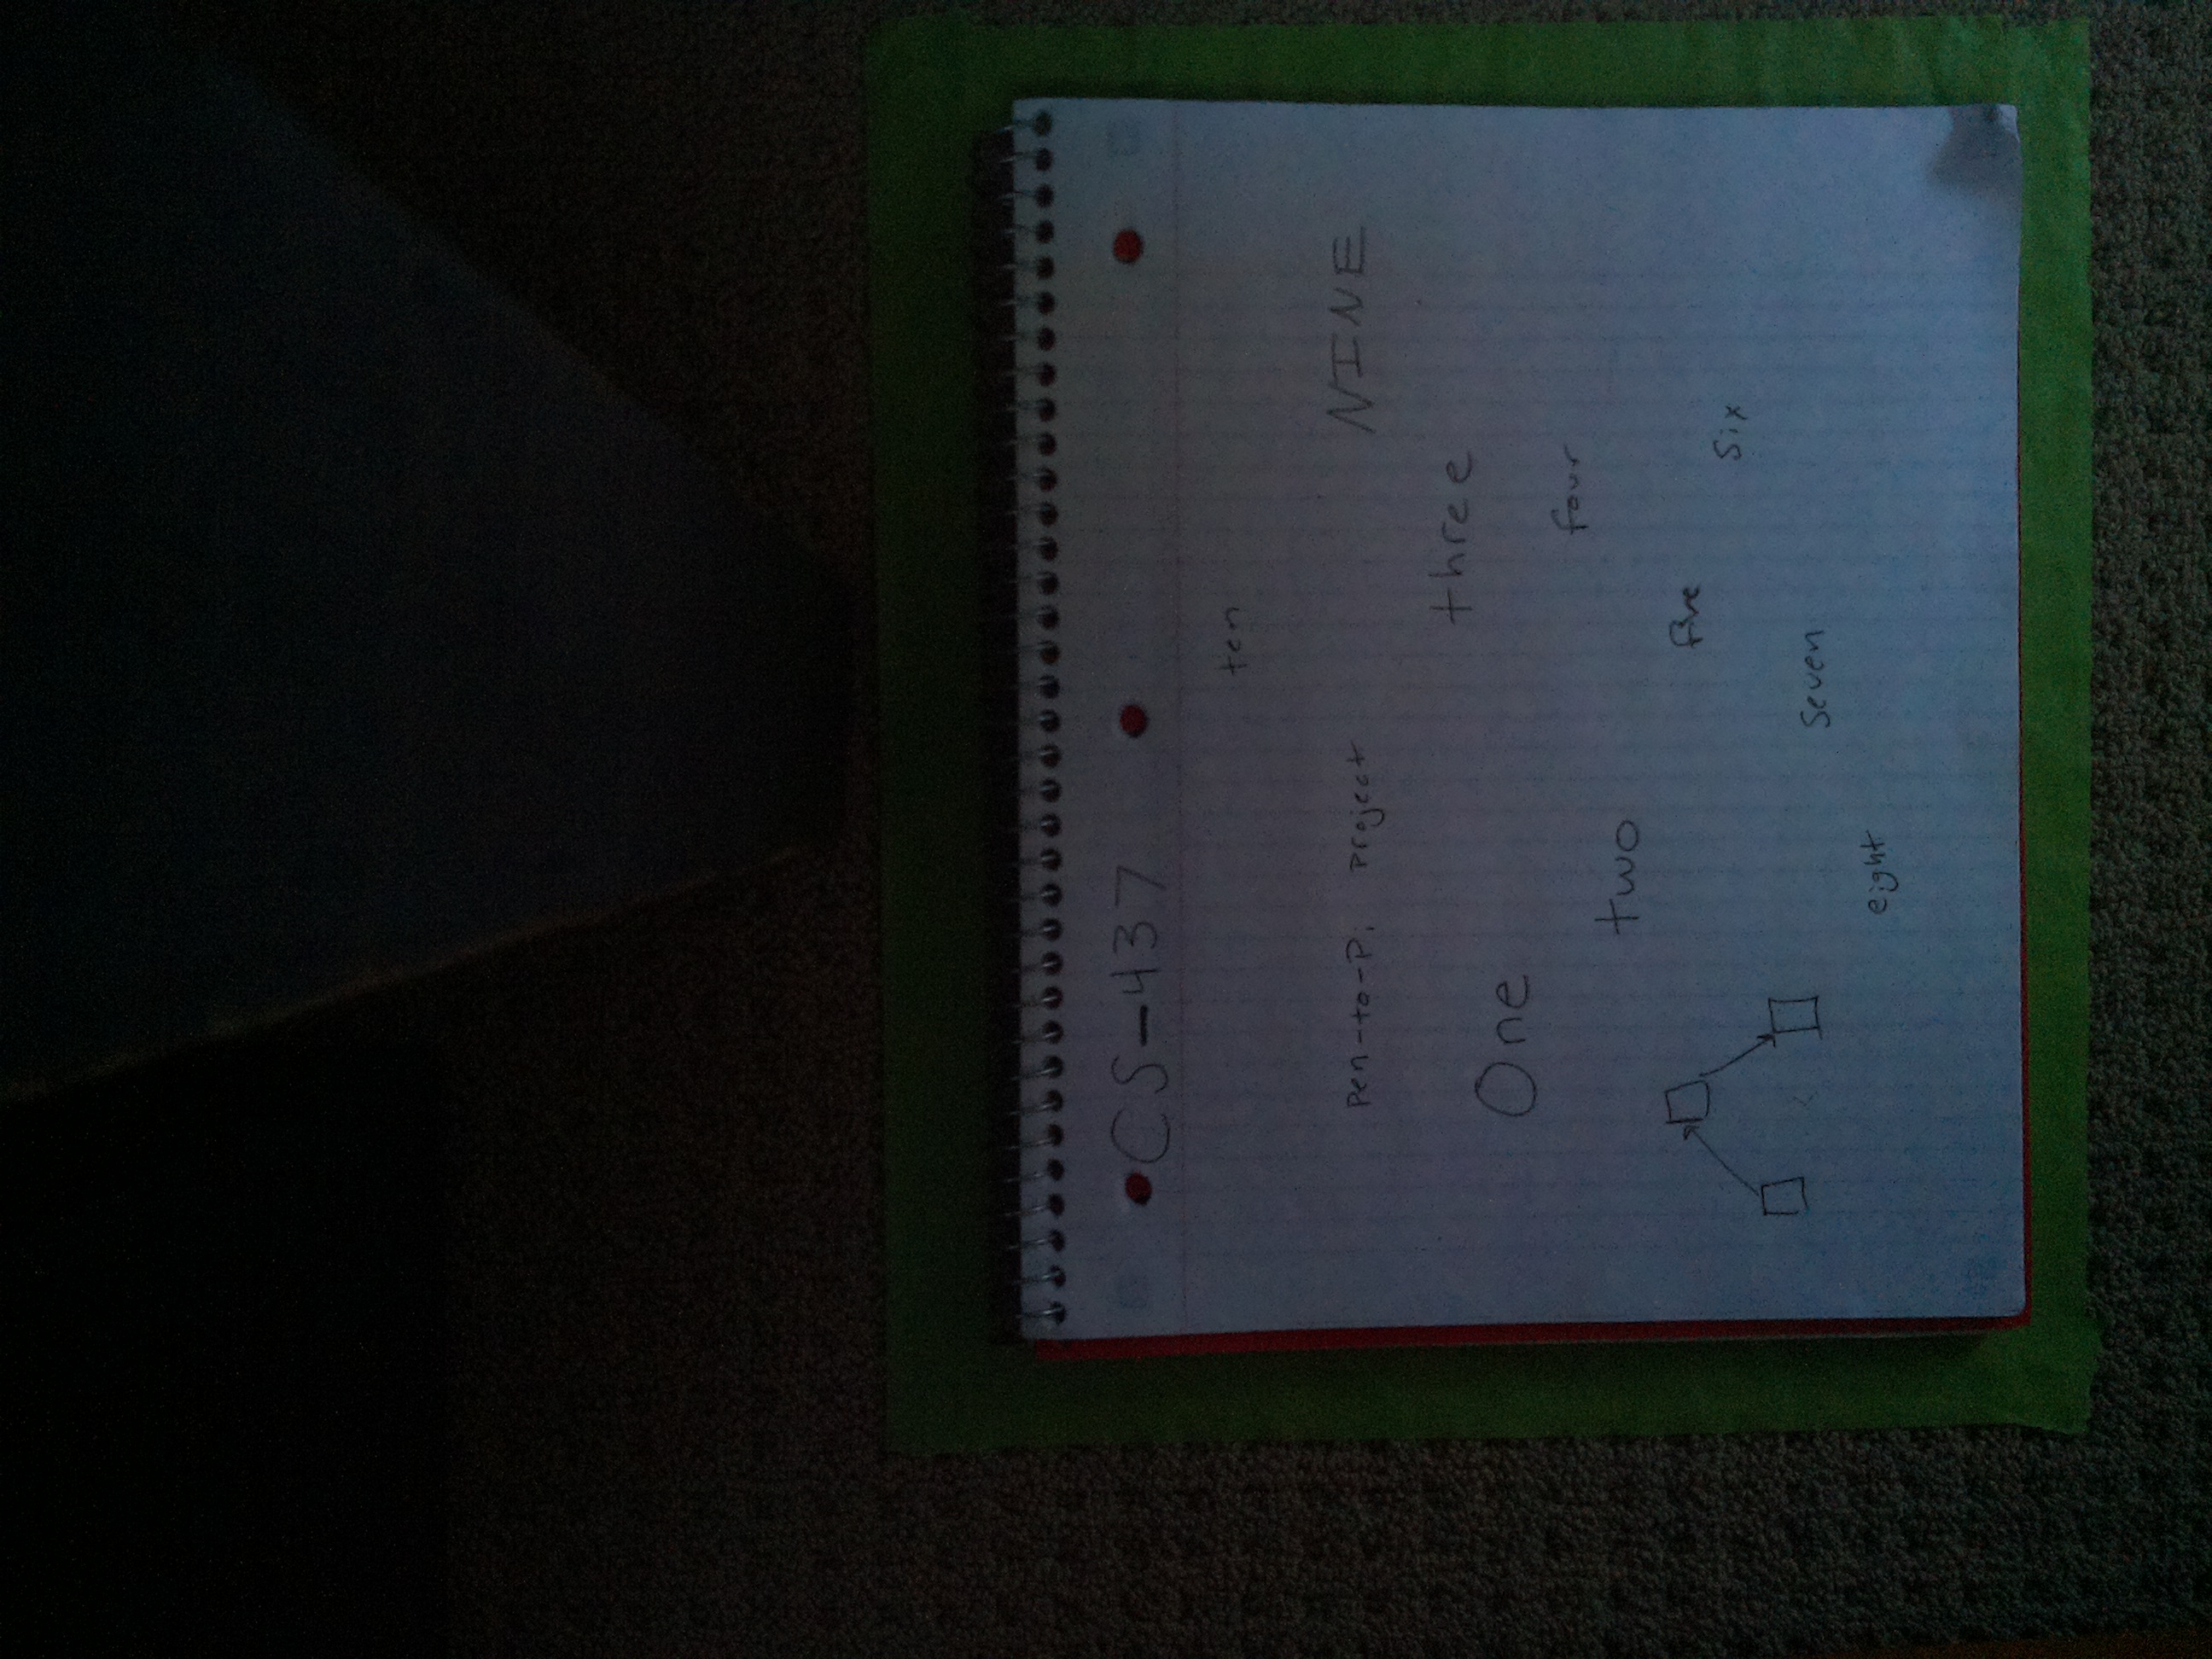 CS-437
ten
Pen-to-Pi project
NINE
One
three
four
two
five
six
seven
eight